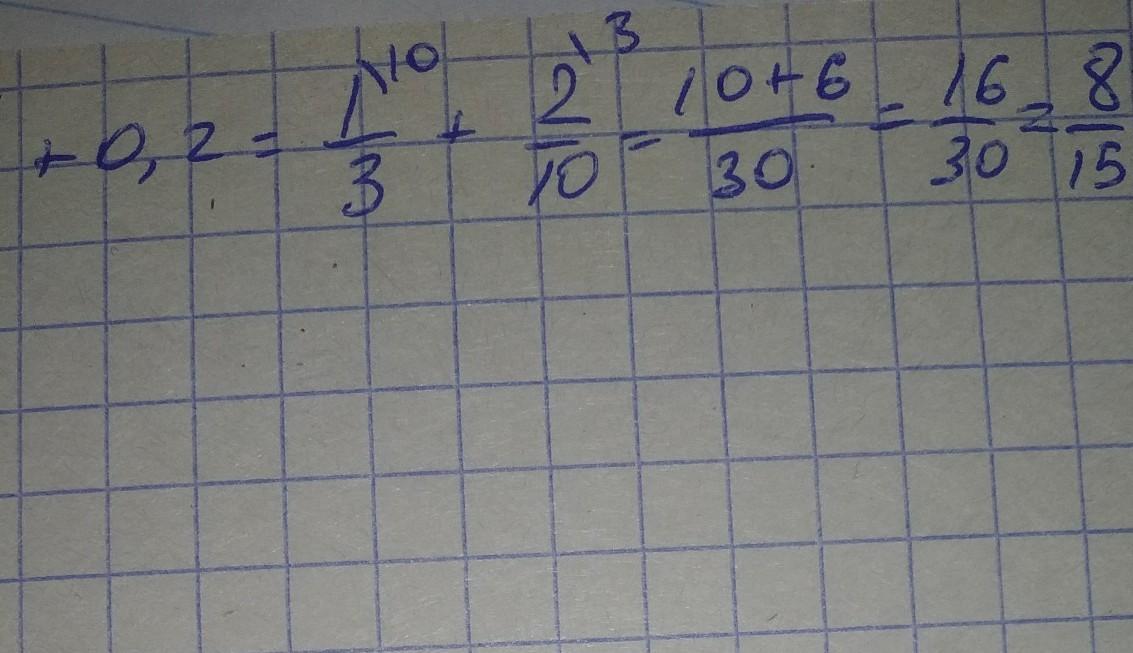 + 0,2 = 1\10/3 + 2\3/10 = 10+6/30 = 16/30 = 8/15